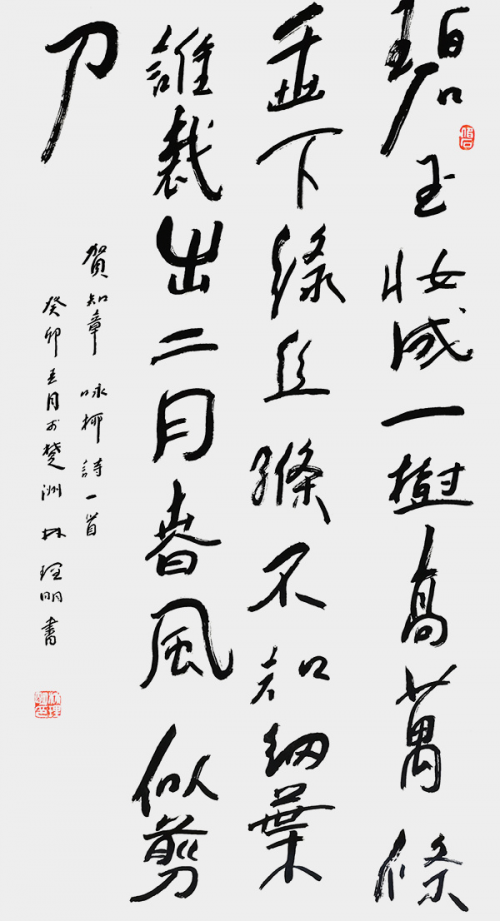 碧玉妝成一樹高萬條
垂下綠丝縧不知細葉
誰裁出二月春風似剪
刀
賀知章 咏柳詩一首
癸卯五月於楚洲 林理明書